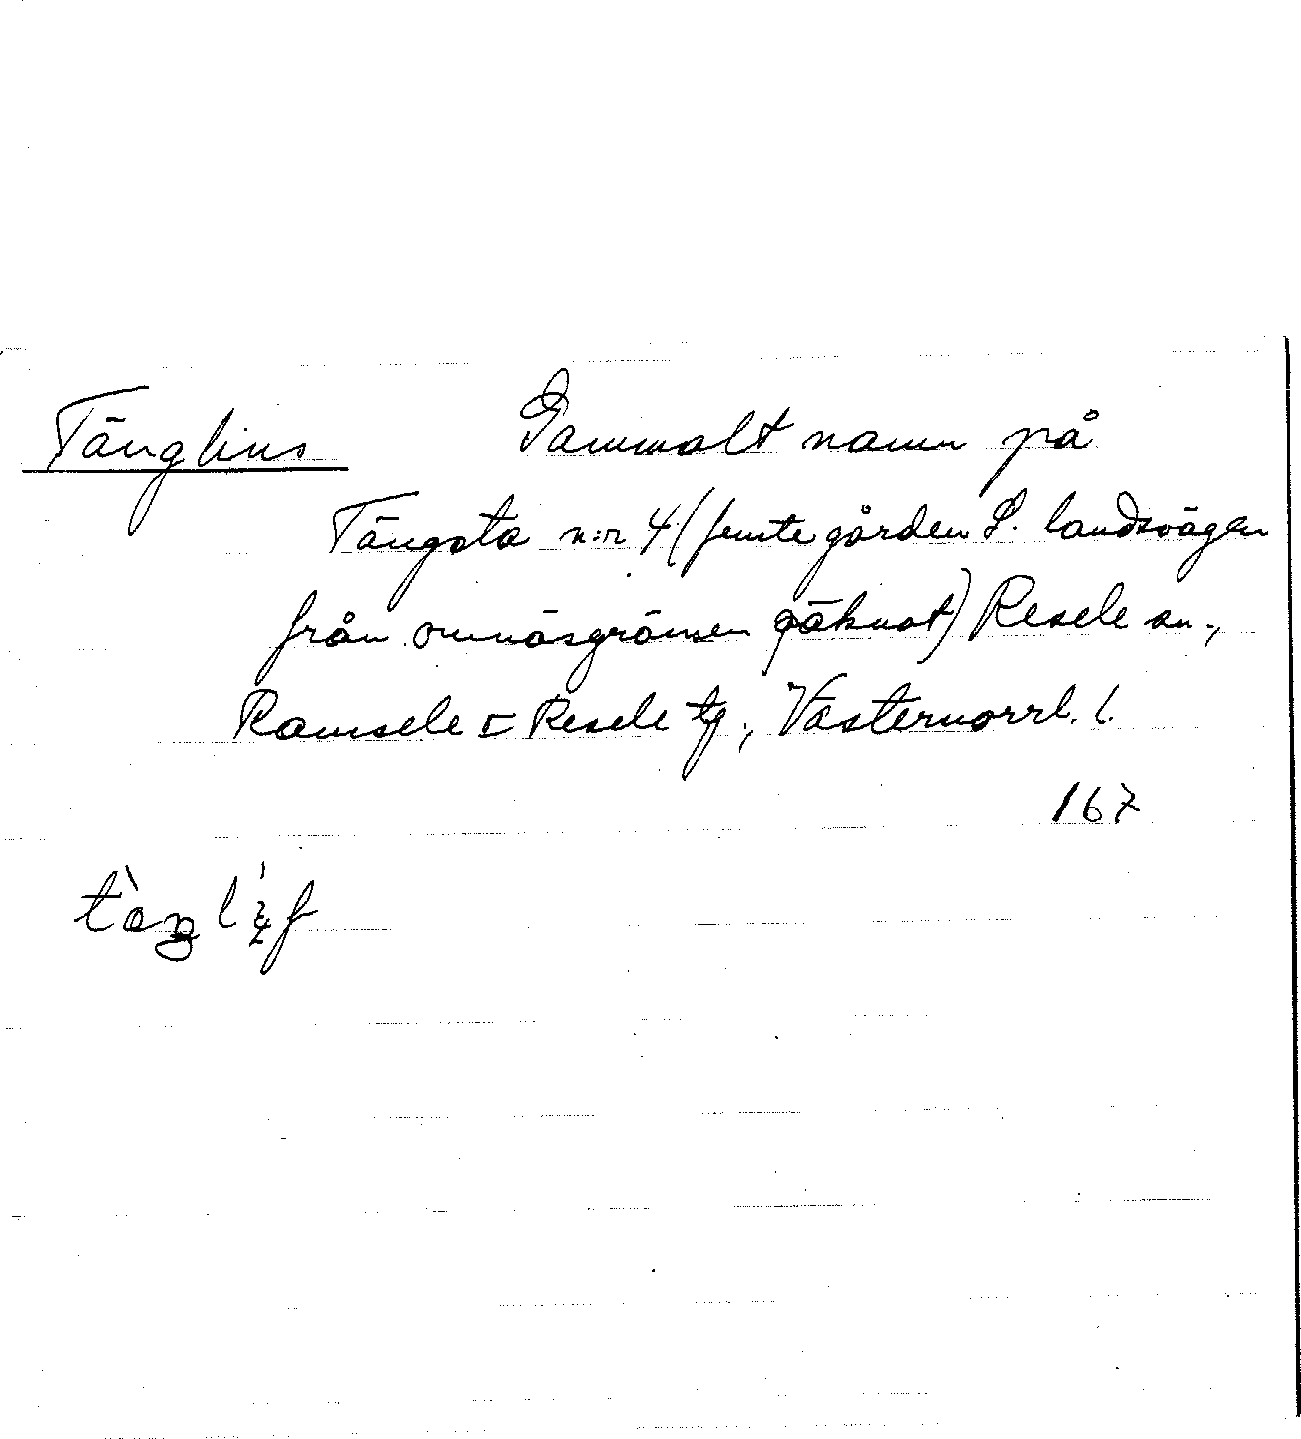 Tänglins Gammalt namn på
Tängsta n:r 4 (femte gården S. landsvägen
från Omnäsgränsen räknat) Resele sn.,
Ramsele o Resele tg., Västernorrl. l.
167